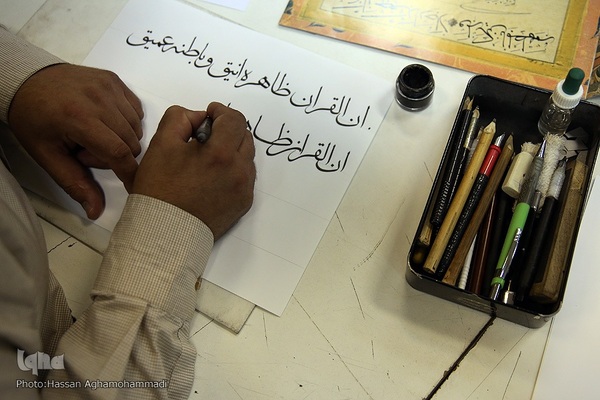 ان القران ظاهره انیق و باطنه عمیق
ان القران ظاهر
iqna
Photo:Hassan Aghamohammadi